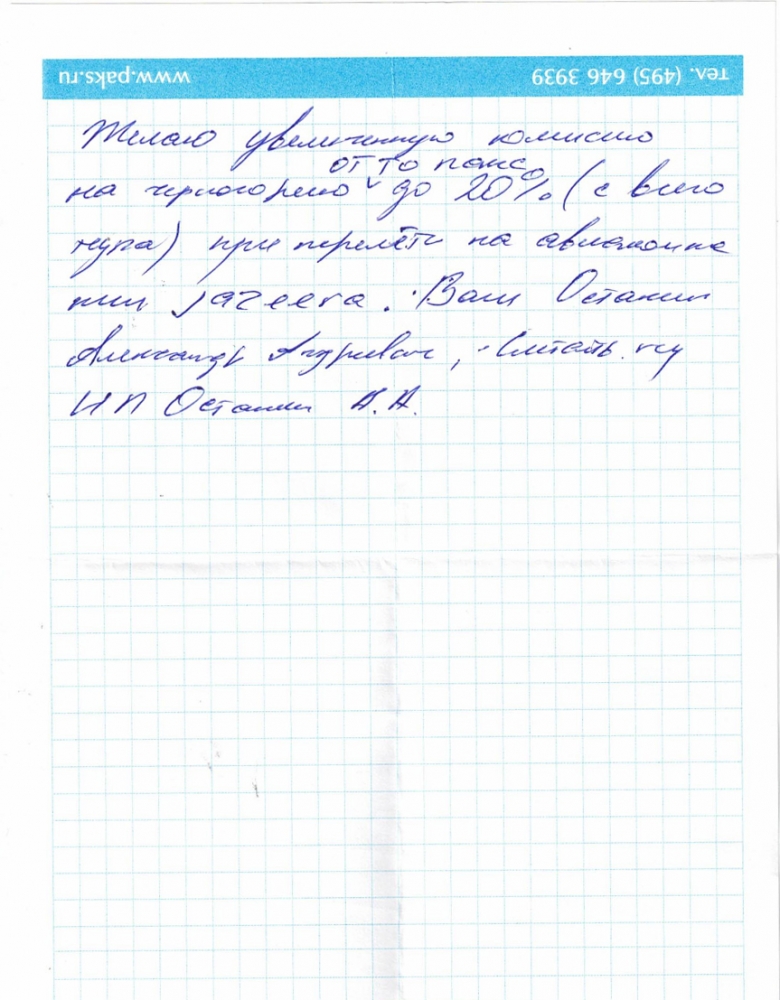 www.paks.ru тел. (495) 646 3939
Желаю увеличенную комиссию
от ТО пакс
на черногорию до 20% (с всего
тура) при перелёте на авиакомпа
нии Jazeera. Ваш Останин
Александр Андреевич, Считать
ИП Останин А.А.